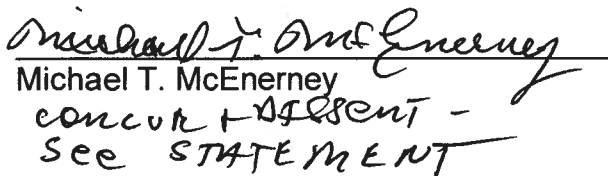 Michael T. McEnerney
Michael T. McEnerney
concur + dissent -
See STATEMENT